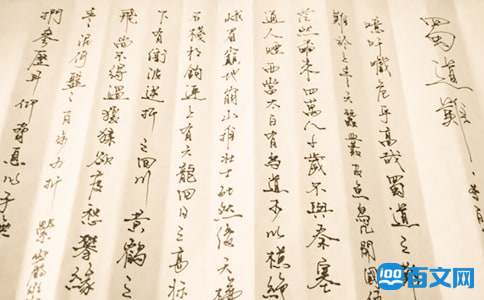 蜀道難
噫吁嚱危乎高哉蜀道之難
難於上青天蠶叢及魚鳧開國
茫然爾來四萬八千歲不與秦塞
通人煙西當太白有鳥道可以橫絕
峨眉巔地崩山摧壯士死然後天梯
石棧相鉤連上有六龍回日之高標
下有衝波逆折之回川黃鶴之
飛尚不得過猨猱欲度愁攀緣
青泥何盤々百步九折縈巖巒
捫參歷井仰脅息以手
100百文网